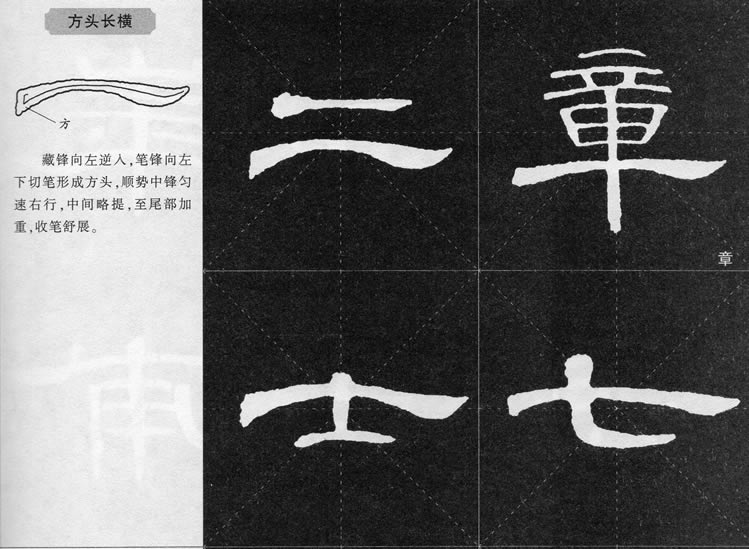 方头长横
方
藏锋向左逆入,笔锋向左
下切笔形成方头,顺势中锋匀
速右行,中间略提,至尾部加
重,收笔舒展。
二
章
章
士
七